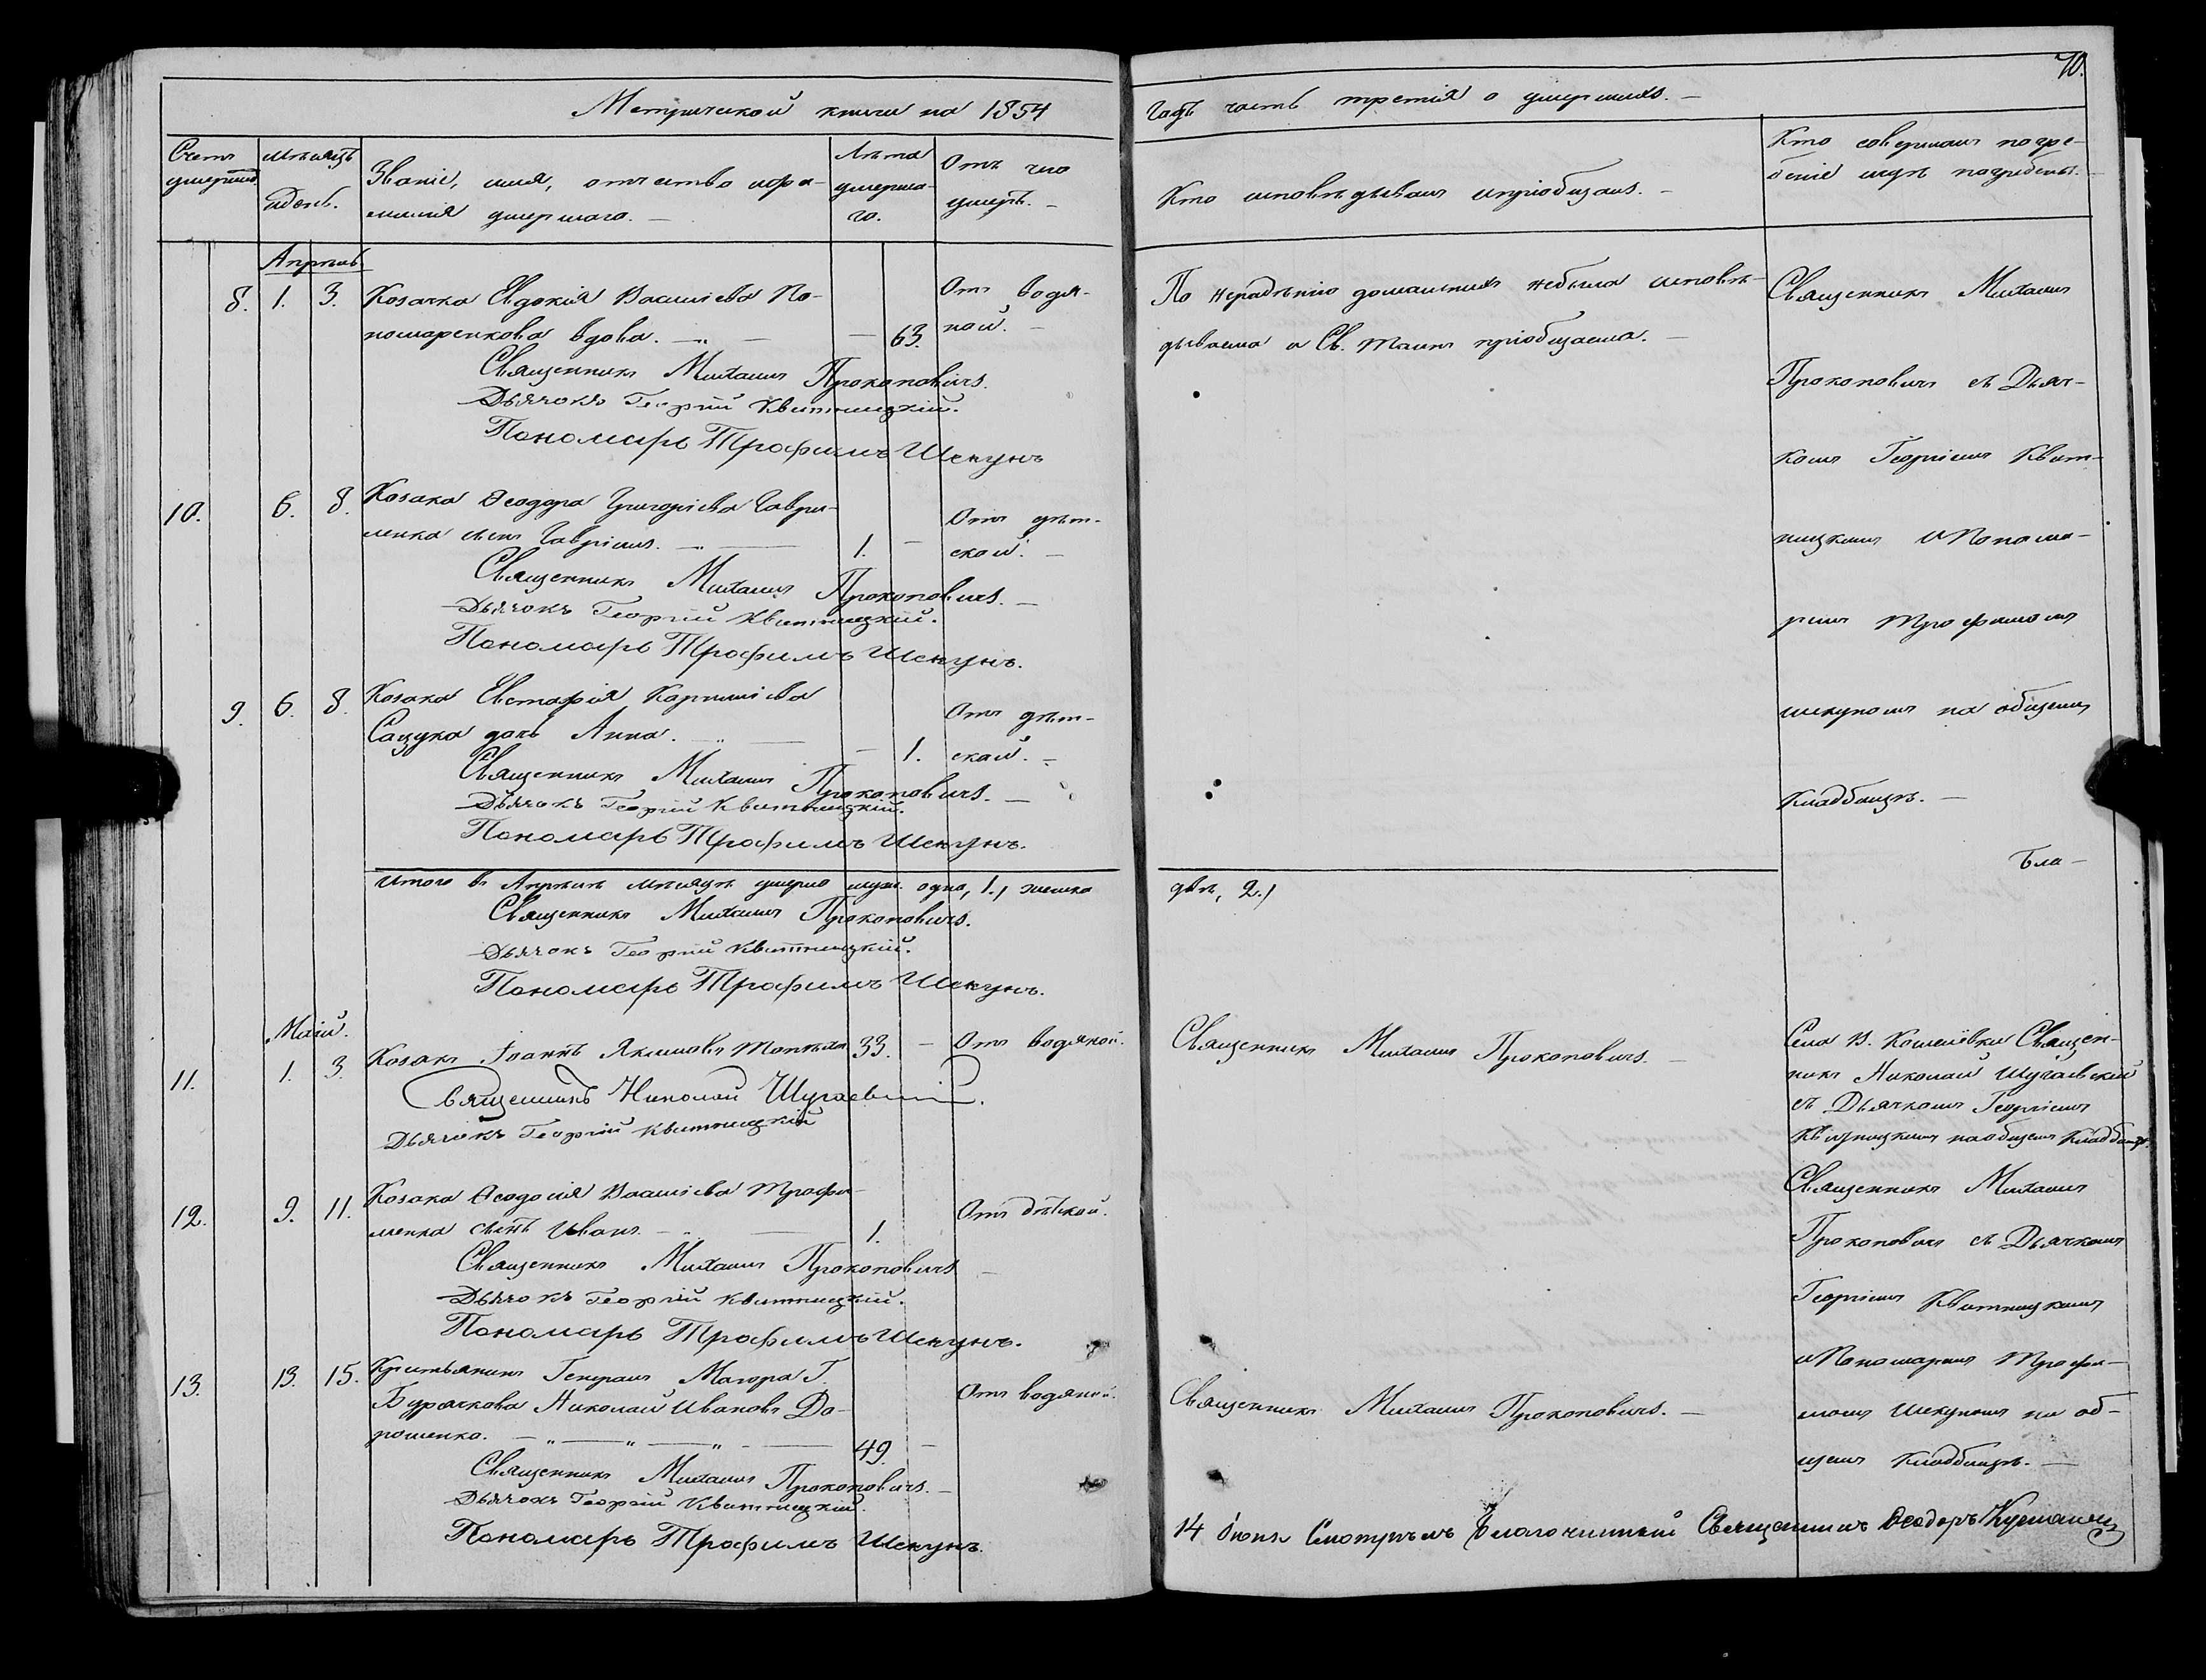 70.
Метрической книги на 1854
Счетъ умершихъ
Мѣсяцъ и день.
Званіе, имя, отчество и фа-
милія умершаго. —
Лѣта
умерша-
го.
Отъ чего
умеръ. —
Апрѣль.
8. 1. 3. Козачка Евдокія Василіева По-
номаренкова вдова. — „ — — 63.
Отъ водя-
ной. —
Священникъ Михаилъ Прокоповичъ.
Дьячокъ Георгій Квитницкій.
Пономарь Трофимъ Шекунъ
10. 6. 8. Козака Ѳеодора Григоріева Гаври-
ленка сынъ Гавріилъ. — „ — 1. —
Отъ дѣт-
ской. —
Священникъ Михаилъ Прокоповичъ. —
Дьячокъ Георгій Квитницкій.
Пономарь Трофимъ Шекунъ.
9. 6. 8. Козака Евстафія Корниліева
Сацука дочь Анна. — „ — — 1.
Отъ дѣт-
ской. —
Священникъ Михаилъ Прокоповичъ. —
Дьячокъ Георгій Квитницкій.
Пономарь Трофимъ Шекунъ.
Итого въ Апрѣлѣ мѣсяцѣ умерло муж. одно, 1., женска
Священникъ Михаилъ Прокоповичъ.
Дьячокъ Георгій Квитницкій.
Пономарь Трофимъ Шекунъ.
Маій.
11. 1. 3. Козакъ Іоаннъ Якимовъ 33. — Отъ водяной.
Священникъ Николай Шугаевскій.
Дьячокъ Георгій Квитницкій
12. 9. 11. Козака Ѳеодосія Василіева Трофи-
менка сынъ Иванъ. — „ — 1.
Отъ дѣтской.
Священникъ Михаилъ Прокоповичъ —
Дьячокъ Георгій Квитницкій.
Пономарь Трофимъ Шекунъ.
13. 13. 15. Крестьянинъ Генералъ Маіора Г.
Бурачкова Николай Ивановъ До-
рошенко. — „ — „ — „ — 49. —
Отъ водяной.
Священникъ Михаилъ Прокоповичъ. —
Дьячокъ Георгій Квитницкій.
Пономарь Трофимъ Шекунъ.
годъ часть третія о умершихъ. —
Кто исповѣдывалъ и пріобщалъ. —
Кто совершалъ погре-
беніе и гдѣ погребены. —
По нерадѣнію домашнихъ небыла исповѣ-
дываема и Св. Таинъ пріобщаема. —
Священникъ Михаилъ
Прокоповичъ съ Дьяч-
комъ Георгіемъ Квит-
ницкимъ и Понома-
ремъ Трофимомъ
Шекуномъ на общемъ
Кладбищѣ. —
Бла-
двѣ, 2.,
Священникъ Михаилъ Прокоповичъ. —
Села В. Кошелевки Священ-
никъ Николай Шугаевскій
съ Дьячкомъ Георгіемъ
Квитницкимъ на общемъ Кладбищѣ.
Священникъ Михаилъ
Прокоповичъ съ Дьячкомъ
Георгіемъ Квитницкимъ
и Пономаремъ Трофи-
момъ Шекуномъ на об-
щемъ Кладбищѣ. —
Священникъ Михаилъ Прокоповичъ. —
14 Іюня Смотрѣлъ Благочинный Священникъ Ѳеодоръ